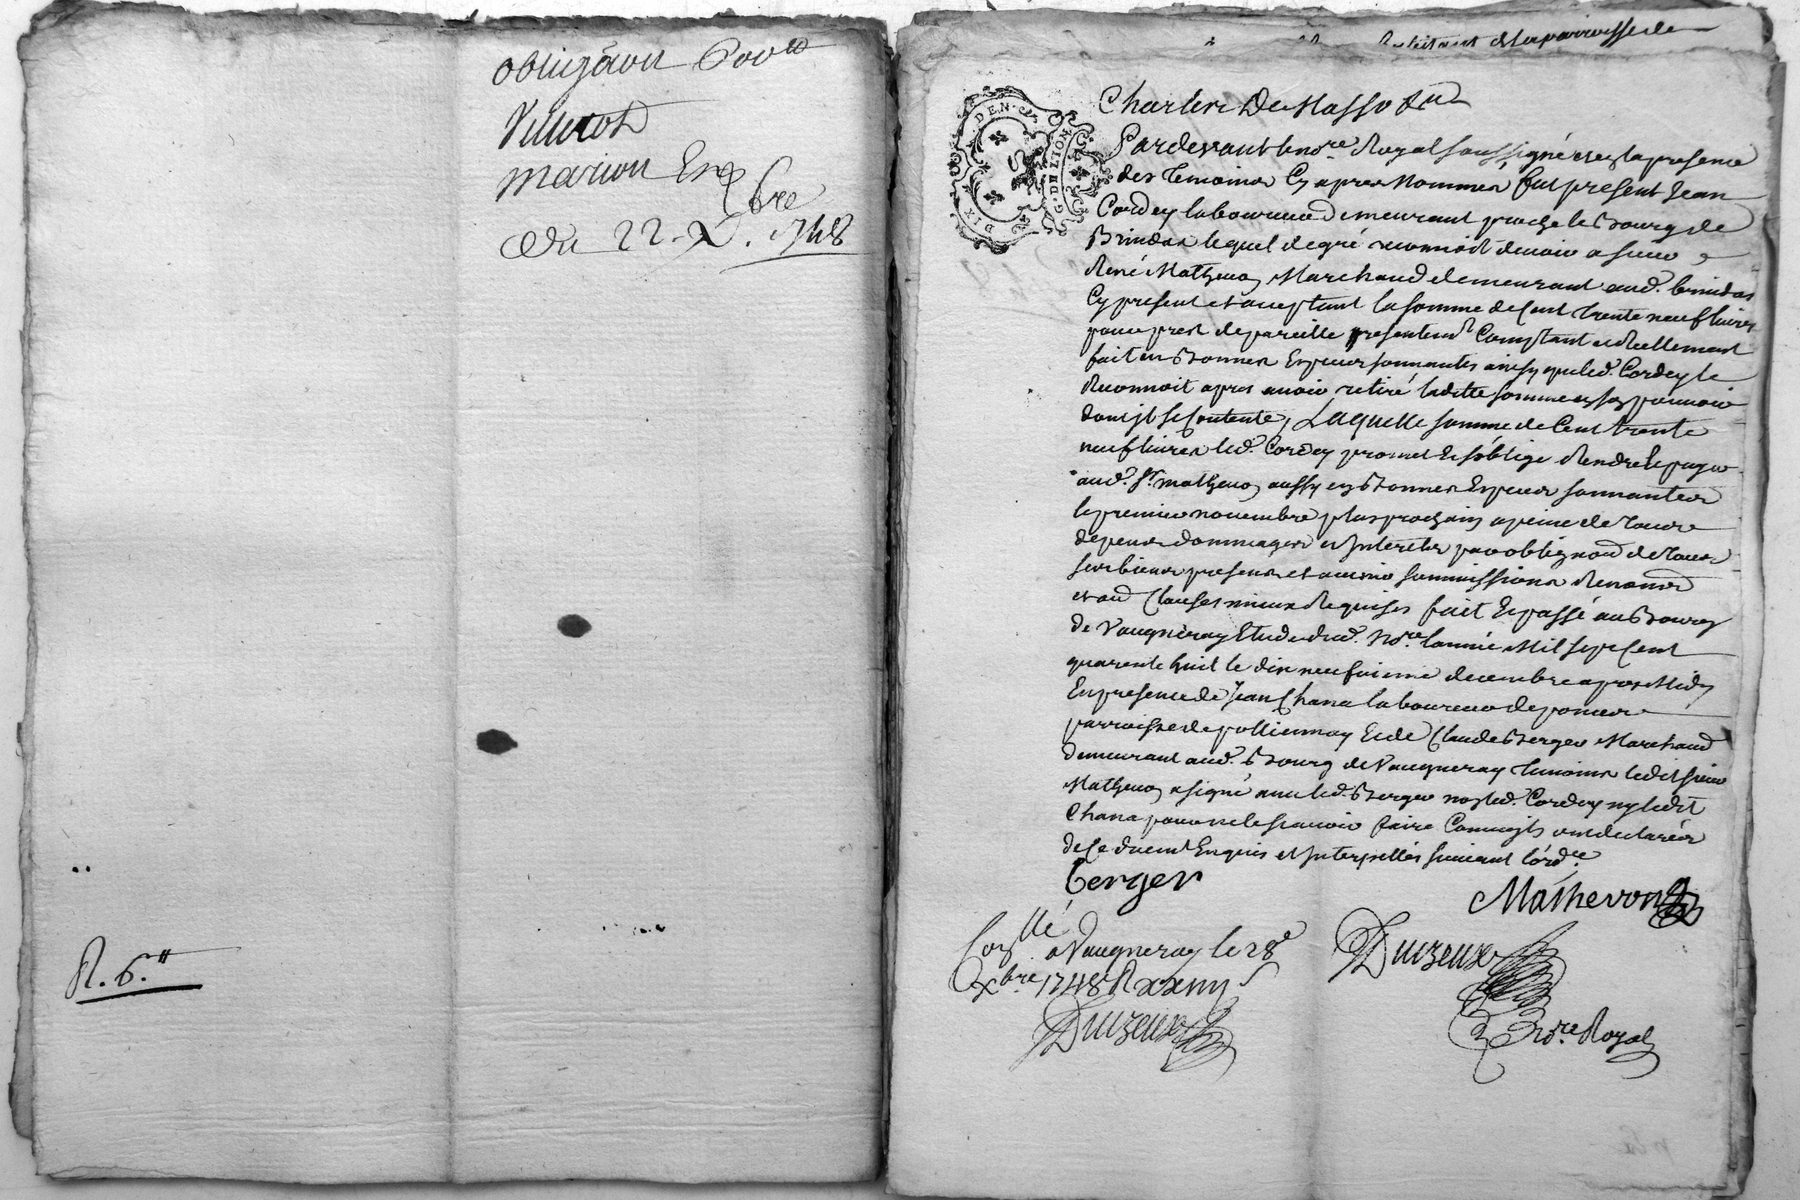 obligaõn pour
Villerot
marion Enq
Du 22. Xbre 1748
R. 6.tt
habitant de la parroisse de
Charles De Masso &a
DIX DEN. GÉN. DE LYON
Pardevant le no.re Royal soussigné et en la presence
des Temoins Cy apres Nommés fut present Jean
Cordey laboureur demeurant proche le Bourg de
Brindas lequel de gré reconnoit devoir a sieur
René Matheuon Marchand demeurant aud. brindas
Cy present et acceptant la somme de Cent trente neuf livres
pour prest de pareille presentemt Comptant et Reellement
fait en Bonnes Especes sonnantes ainsy que led. Cordey le
Reconnoit apres avoir retiré laditte somme en son pouvoir
dont jl se Contente, LAquelle somme de Cent trente
neuf livres led. Cordey promet Et s'oblige Rendre Et payer
aud. Sr. matheuon aussy en Bonnes Especes sonnantes
le premier novembre plus prochain a peine de tous
depens dommages et Interets par obligaõn de tous
ses biens presens et avenir soummissions Renonõns
et au Clauses mieux Requises fait Et passé au Bourg
de Vaugneray Etude dud. No.re l'année Mil sept Cent
quarente huit le dix neufvieme decembre apres Midy
En presence de Jean Chana laboureur de
parroisse de pollionnay Et de Claude Berger Marchand
demeurant aud. Bourg de Vaugneray temoins ledit sieur
Matheuon a signé avec led. Berger non led. Cordey ny ledit
Chana pour ne le scavoir faire Comme jls ont declarés
de Ce duemt Enquis et Interpellés suivant l'ord.ce
berger
Matheron
Conllé a Vaugneray le 28e
Xbre 1748 R xxiiij s
Duizeux
Duizeux
no.re Royal